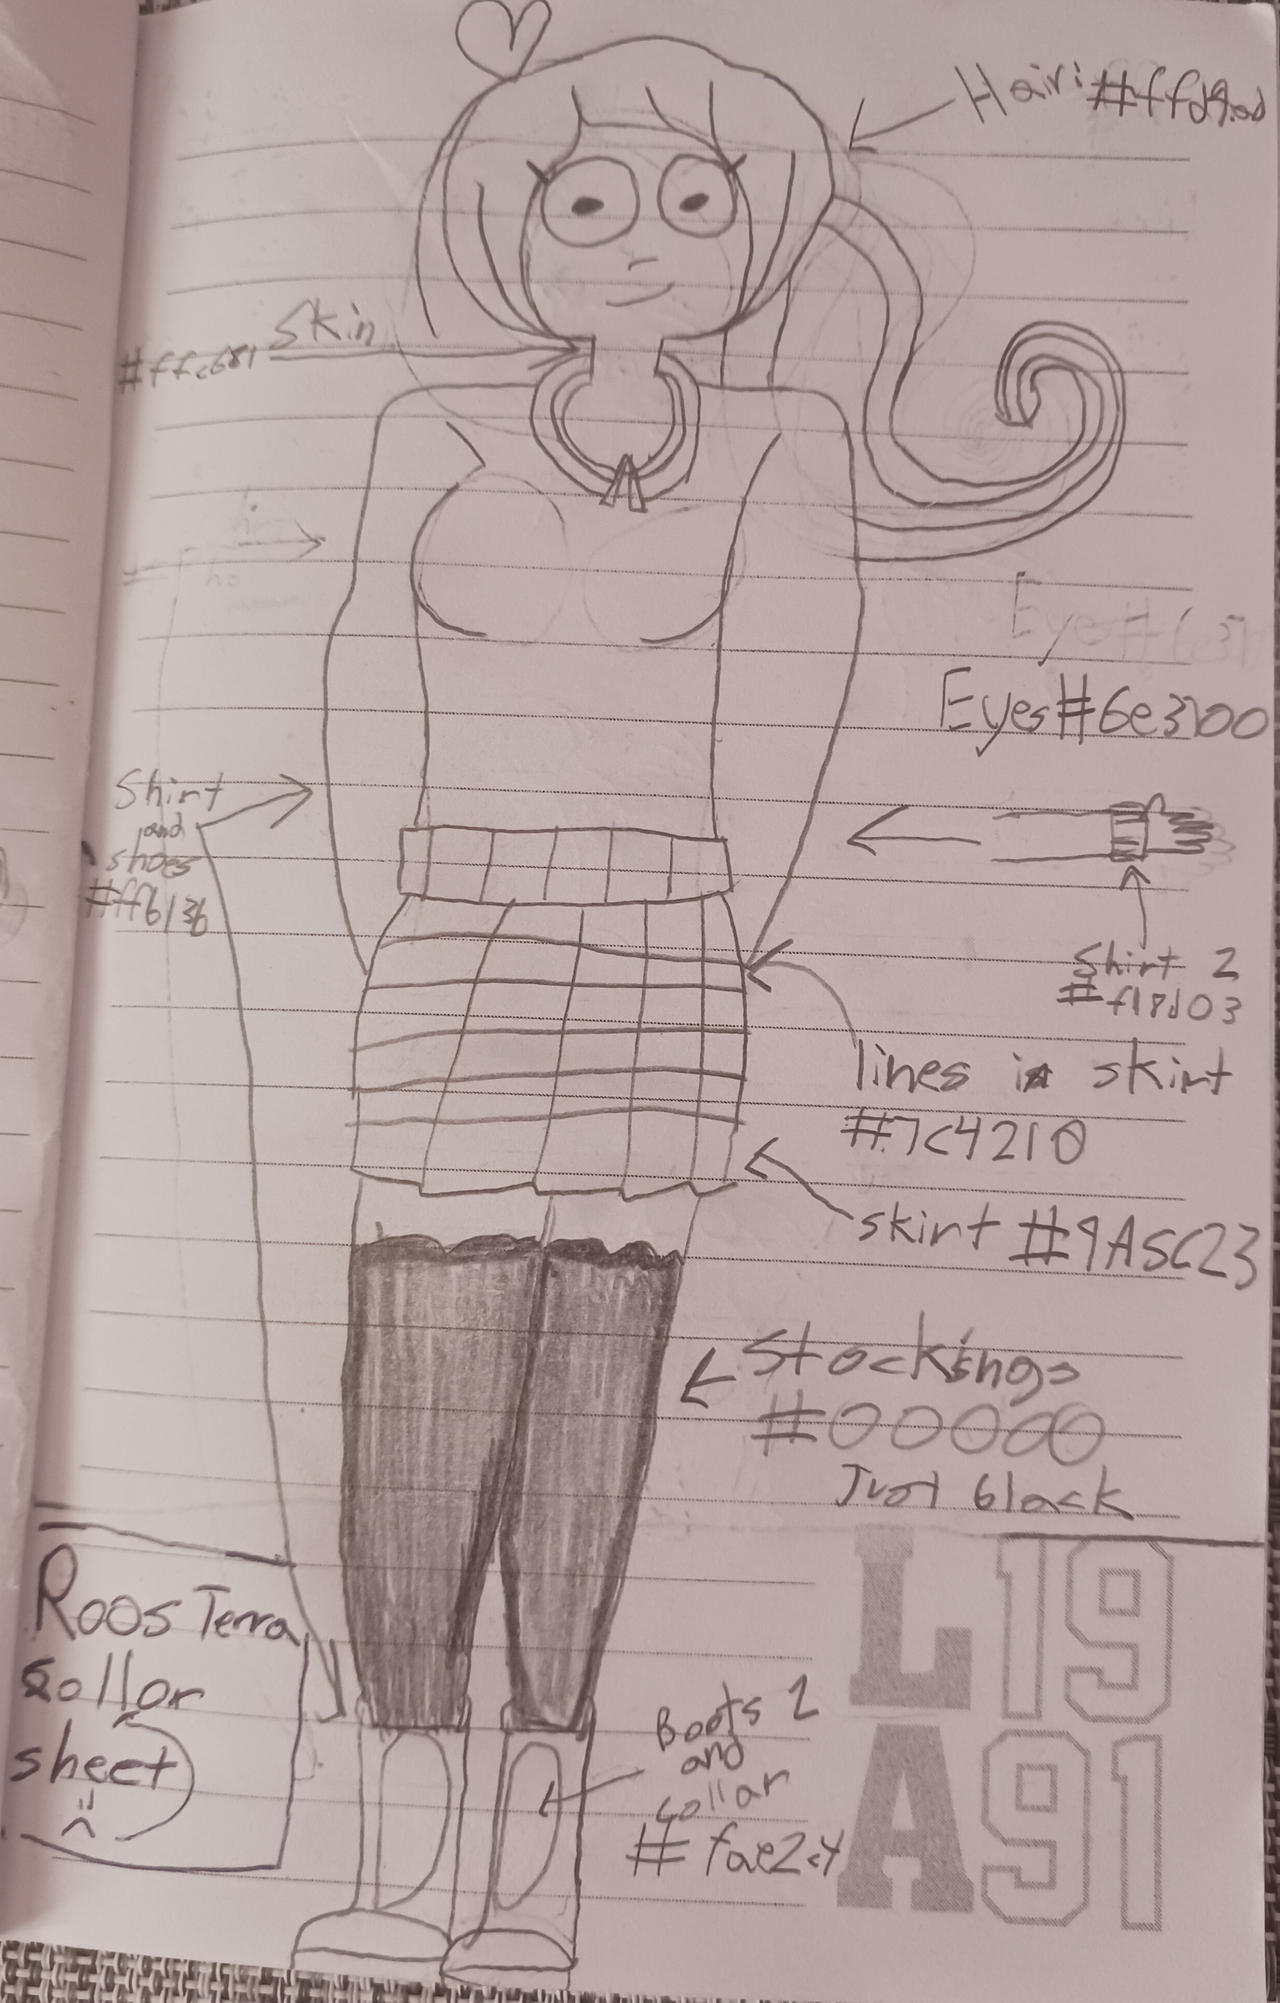 Hair: #ffd9ad
Skin
#ffc681
hi
ho
Eye #637
Eyes #6e3200
Shirt
and
shoes
#ff613b
Shirt 2
#f18d03
lines in skirt
#7c4210
skirt #9A5C23
Stockings
#00000
Just black
Roos Terra
collor
sheet
Boots 2
and
collar
#fae2c4
L19
A91